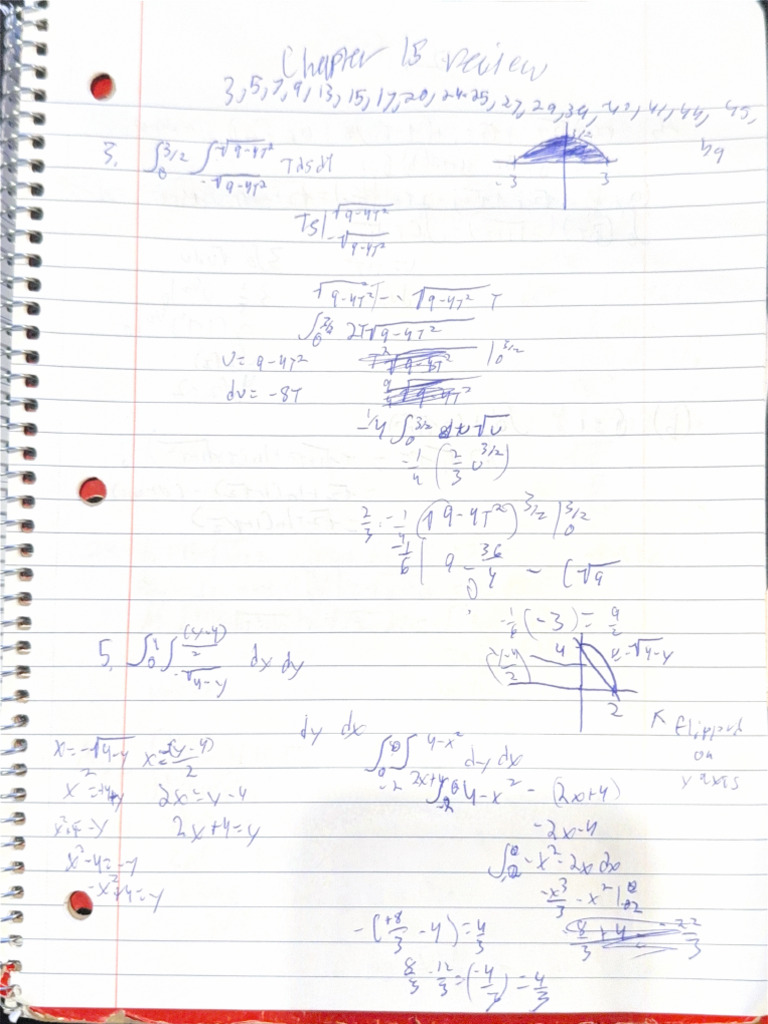 Chapter 15 review
3, 5, 7, 9, 13, 15, 17, 20, 24, 25, 27, 29, 34, 40, 41, 44, 45,
49
3. ∫₀^{3/2} ∫_{-√(9-4T²)}^{√(9-4T²)} T ds dT
1/2
-3 3
TS |_{-√(9-4T²)}^{√(9-4T²)}
√(9-4T²) - -√(9-4T²) T
∫₀^{3/2} 2T√(9-4T²)
U = 9-4T² |₀^{3/2}
du = -8T
-1/4 ∫₀^{3/2} √U
-1/4 (2/3 U^{3/2})
2/3 · -1/4 (√9-4T²)^{3/2} |₀^{3/2}
-1/6 | 9 - 36/4 - (√9
0
-1/6 (-3) = 9/2
5. ∫₀⁴ ∫_{-√(4-y)}^{(y-4)/2} dx dy
(y-4)/2 4 x=-√(4-y)
2
dy dx
↖ flipped
on
y axis
x = -√(4-y) x = (y-4)/2
∫_{-2}^{0} ∫_{2x+4}^{4-x²} dy dx
x² = +4-y 2x = y-4
∫_{-2}^{0} 4-x² - (2x+4)
x²-4 = -y 2x+4 = y
-2x-4
x²-4 = -y
∫_{-2}^{0} -x²-2x dx
-x²+4 = y
-x³/3 - x² |_{-2}^{0}
-(+8/3 - 4) = 4/3
8/3 - 12/3 = (-4/3) = 4/3